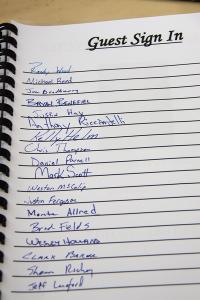 Guest Sign In
Randy Wood
Michael Reed
Jim Bradbury
Bryan Renfro
Justin Hay
Anthony Ricciardelli
Kelly Helm
Chris Thompson
Daniel Parnell
Mark Scott
Weston McCalip
Justin Ferguson
Monte Allred
Brad Fields
Wesley Howard
Clark
Shawn Richey
Jeff Langford